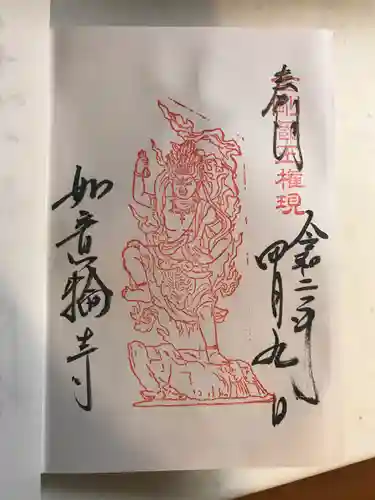 奉拝
蔵王権現
令和二年
四月九日
如意輪寺